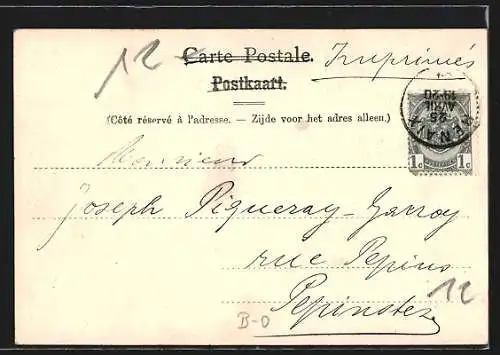 12
Carte Postale. Imprimés
Postkaart.
(Côté réservé à l'adresse. — Zijde voor het adres alleen.)
RENAIX
25
AVRIL
19-20
1c 1c
Monsieur
Joseph Piqueray-Garroy
rue Pepins
Pepinster
12
B-O